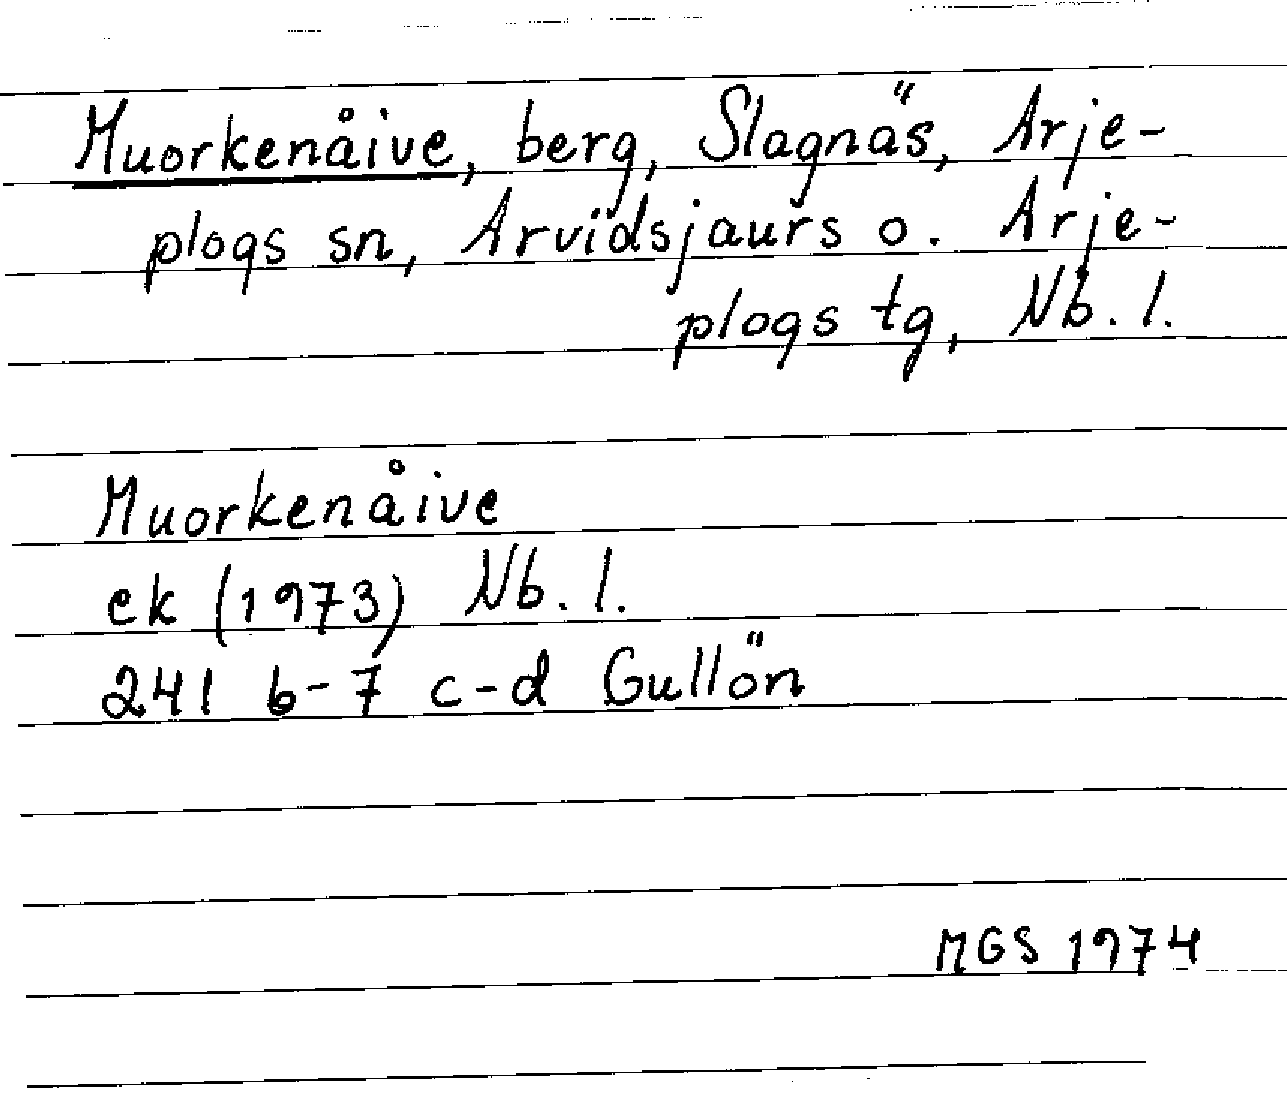 Muorkenåive, berg, Slagnäs, Arje-
plogs sn, Arvidsjaurs o. Arje-
plogs tg, Nb. l.
Muorkenåive
ek (1973) Nb. l.
241 b-7 c-d Gullön
MGS 1974